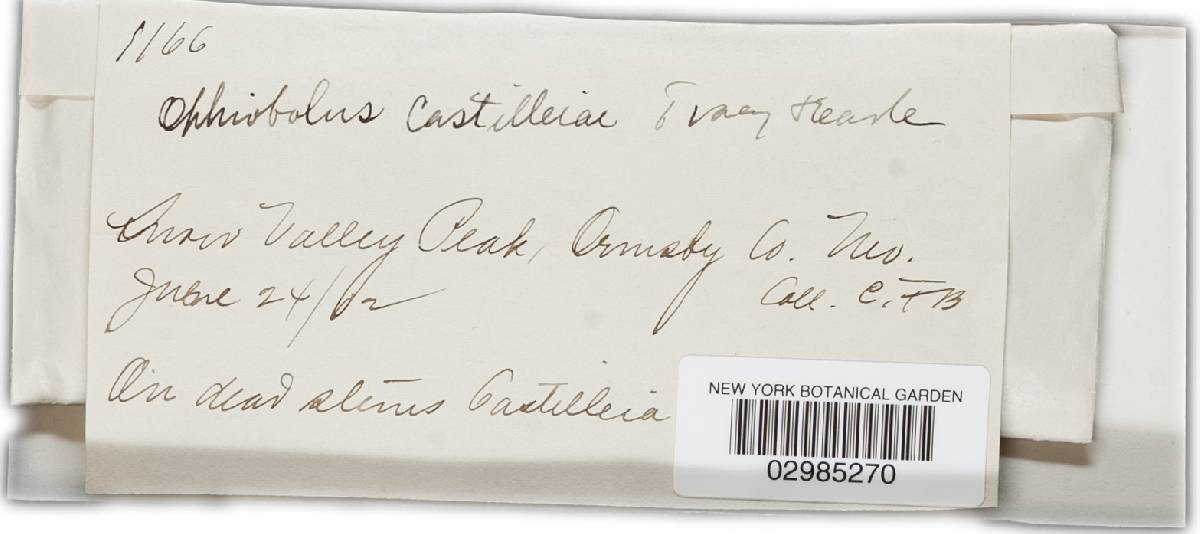 1166
Ophiobolus Castilleiae Tracy & Earle
Snow Valley Peak, Ormsby Co. Nev.
June 24/02
Coll. C. F B
On dead stems Castilleia
NEW YORK BOTANICAL GARDEN
02985270